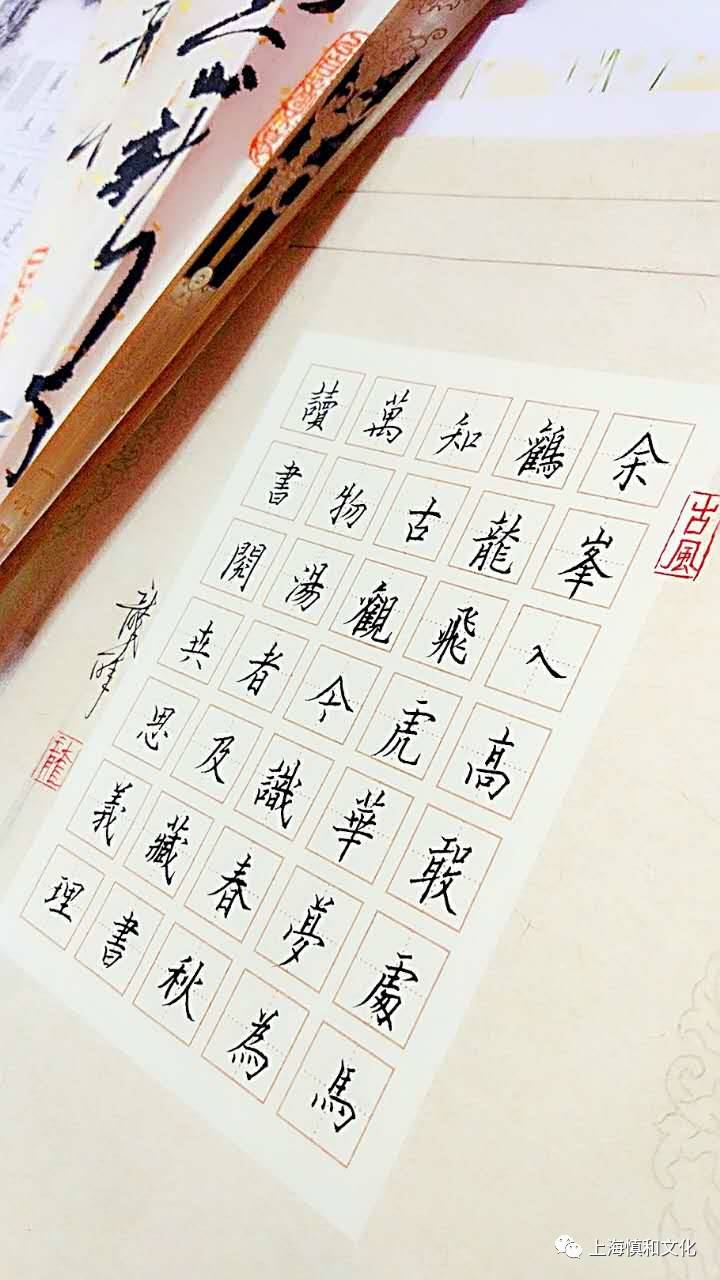 古風
余峯入高處馬
鶴龍飛虎華夢為
知古觀今識春秋
萬物湯者及藏書
讀書閱思義理
龍
上海慎和文化